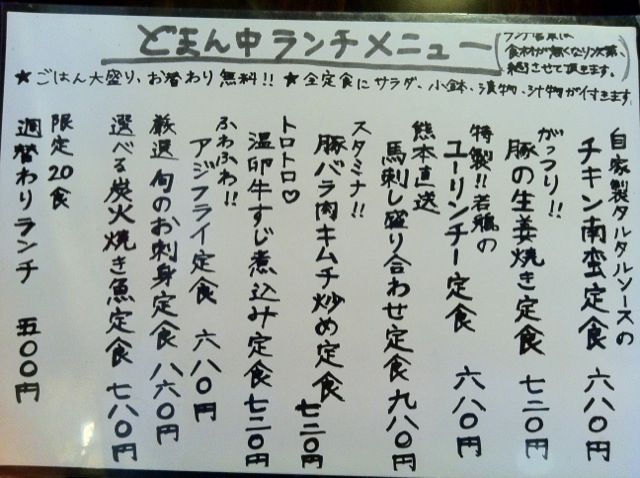 どまん中ランチメニュー
ランチ営業は
食材が無くなり次第、
終了させて頂きます。
★ごはん大盛り、お替わり無料!! ★全定食にサラダ、小鉢、漬物、汁物が付きます。
自家製タルタルソースの
チキン南蛮定食 六八〇円
がっつり!!
豚の生姜焼き定食 七二〇円
特製!!若鶏の
ユーリンチー定食 六八〇円
熊本直送
馬刺し盛り合わせ定食 九八〇円
スタミナ!!
豚バラ肉キムチ炒め定食 七二〇円
トロトロ♡
温卵牛すじ煮込み定食 七二〇円
ふわふわ!!
アジフライ定食 六八〇円
厳選旬のお刺身定食 八六〇円
選べる炭火焼き魚定食 七八〇円
限定20食
週替わりランチ 五〇〇円